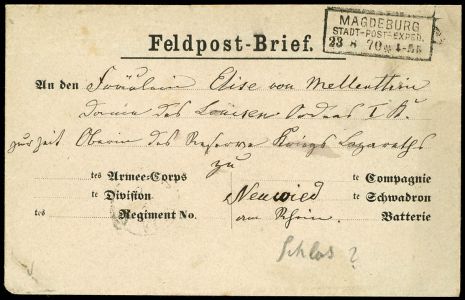 MAGDEBURG
STADT-POST-EXPED.
23 8 70
Feldpost-Brief.
An den Fräulein Elise von Mellenthin
Dame des Louisen Ordens I Kl.
zur Zeit Oberin des Reserve Königs Lazareths
zu
te Armee-Corps te Compagnie
te Division Neuwied te Schwadron
tes Regiment No. am Rhein. Batterie
Schlos ?